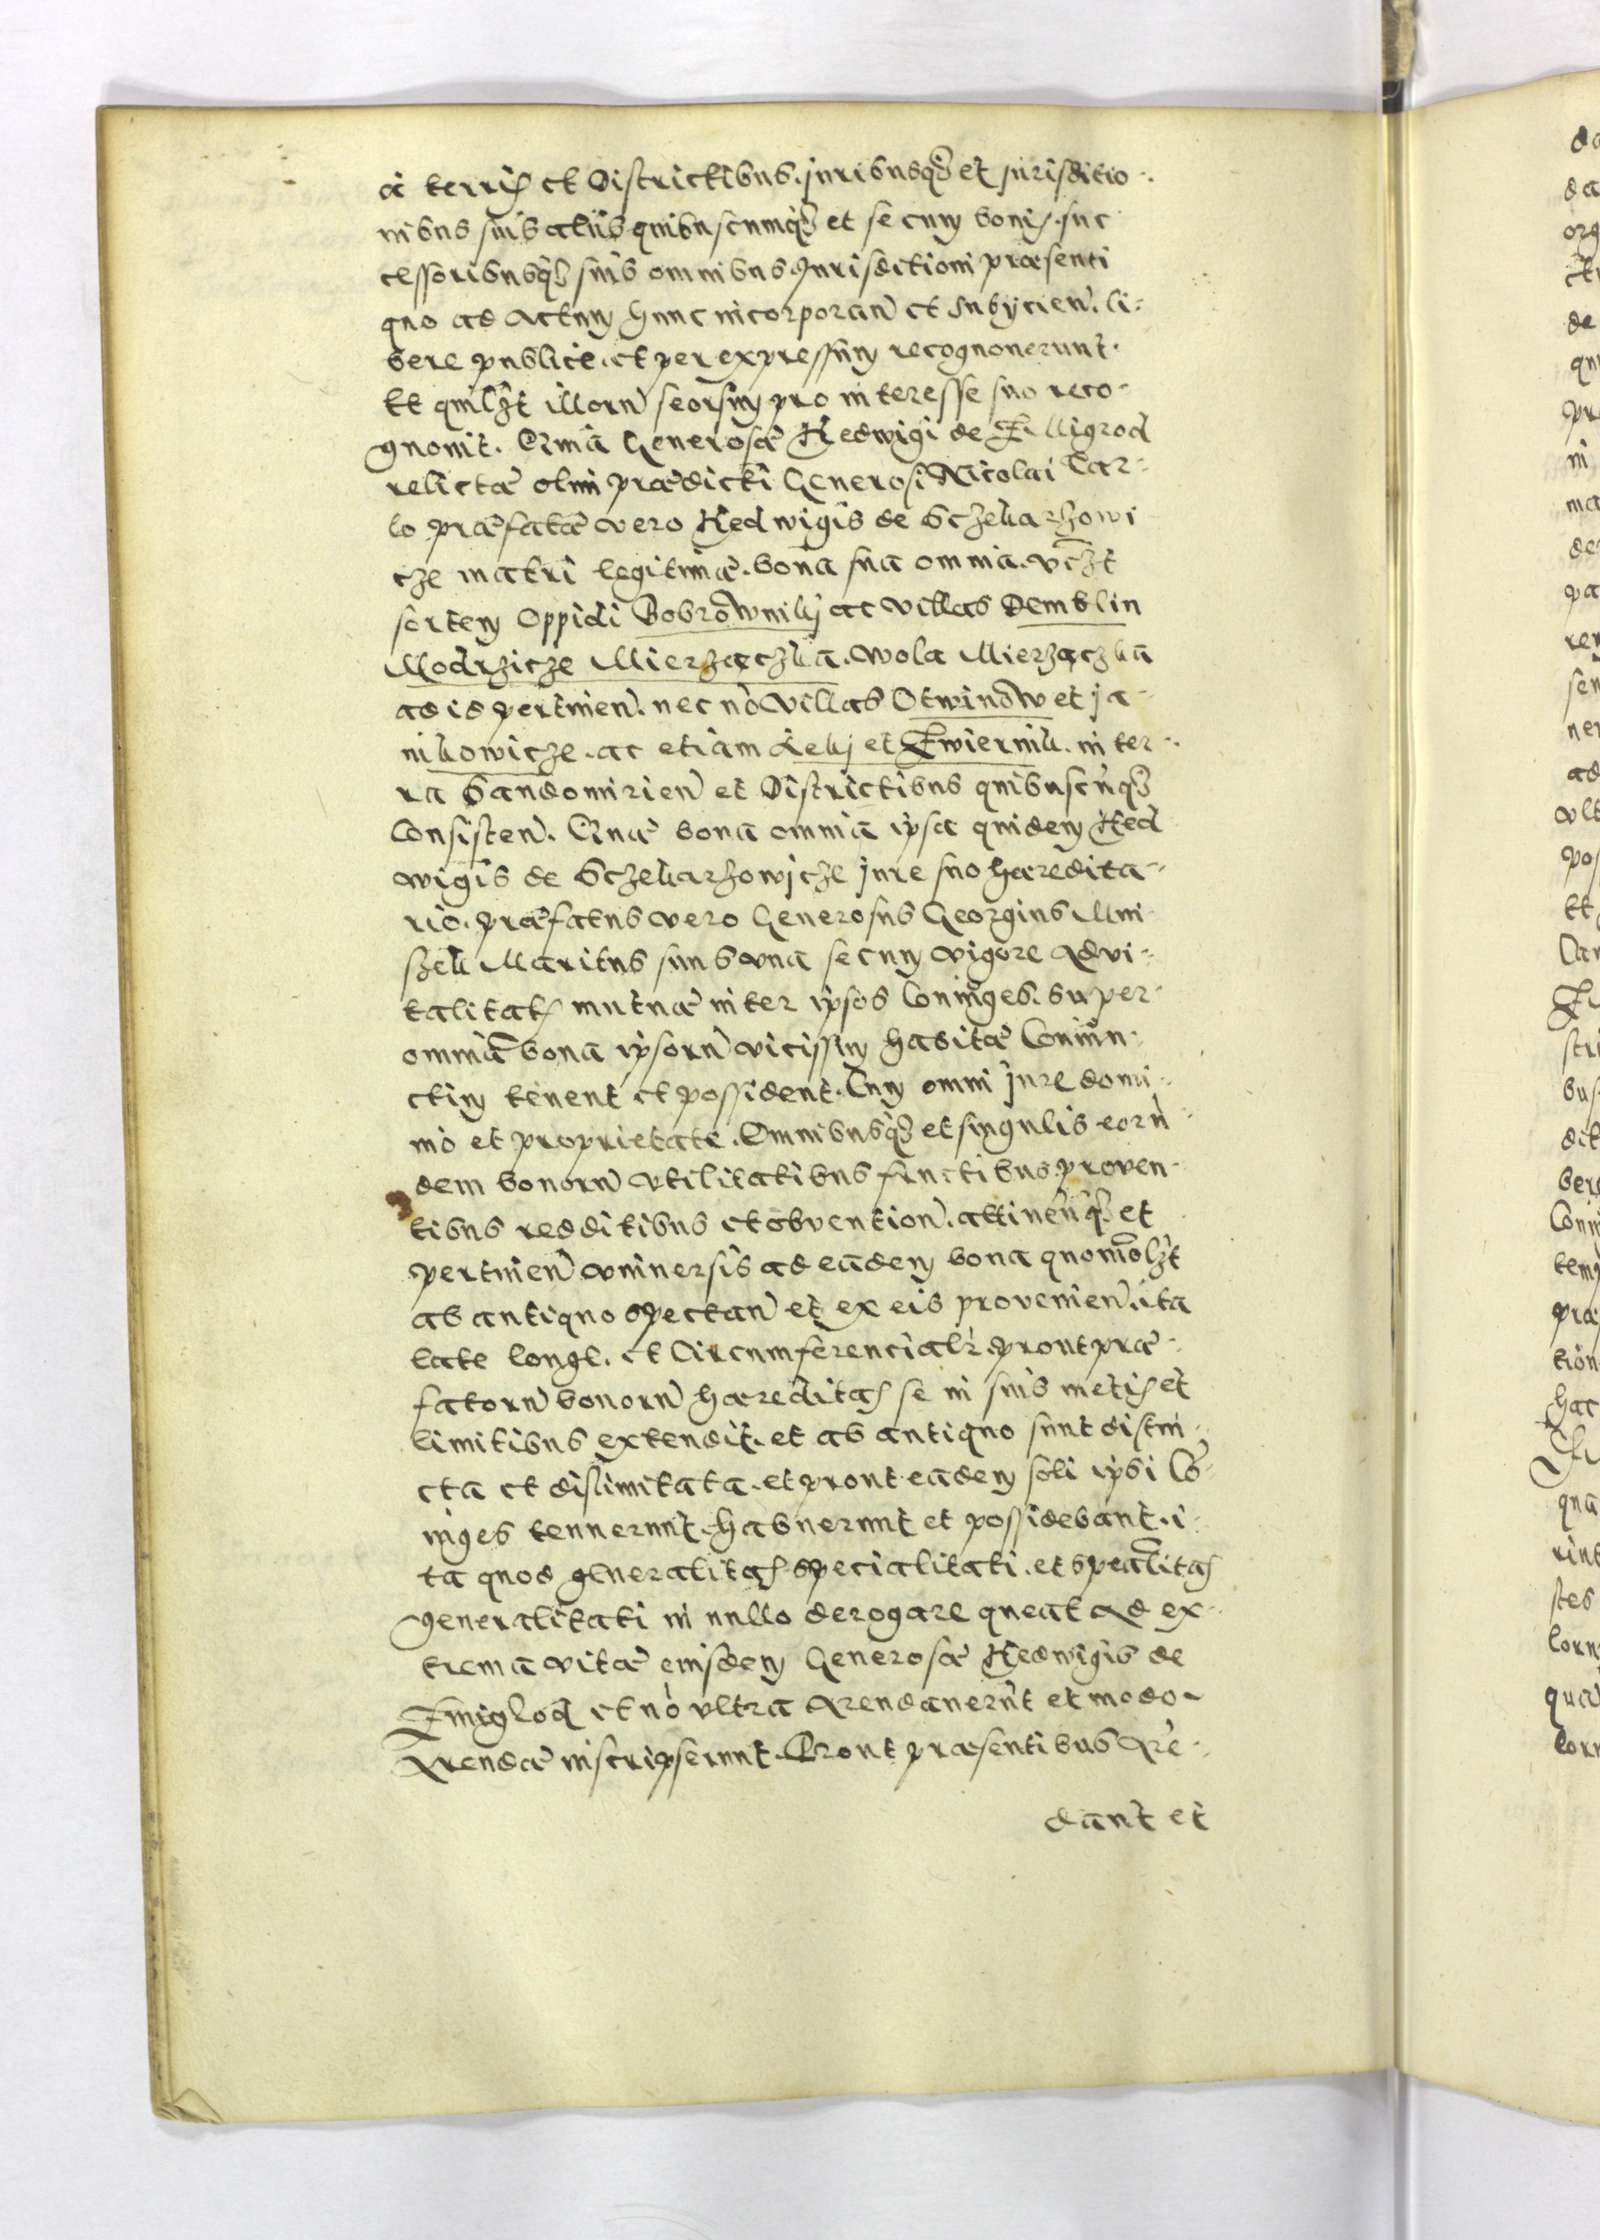 a terris et Districtibus. juribusq3 et jurisditio-
nibus suis aliis quibuscunq3 et se cum bonis. suc
cessoribusq3 suis omnibus Jurisditioni præsenti
quo ad Actum hunc incorporan̄ et subijcien̄. li-
bere publice. et per expressum recognouerunt.
Et quil3t illorū seorsim pro interesse suo reco-
gnouit. Quia Generosæ Hedwigi de
relictæ olim prædicti Generosi Nicolai Tar-
lo præfatæ vero Hedwigis de Sczekarzowi
cze matri legitimæ. bona sua omnia. vc3t
sortem Oppidi Bobrownikj ac villas Demblin
Modrzicze Mierzaczka. Wola Mierzaczka
ad id pertinen̄. nec nō villas Otwinow et ja-
nikowicze. ac etiam Lekj et Zwiernik. in ter-
ra Sandomirien̄ et Districtibus quibuscūq3
Consisten̄. Quæ bona omnia ipsa quidem Hed
wigis de Sczekarzowjcze jure suo hæredita-
rio. præfatus vero Generosus Georgius Mni
szek Maritus suus vna secum vigore Advi-
talitatis mutuæ inter ipsos Coniuges. super
omnia bona ipsorū vicissim habitæ Coniun-
ctim tenent et possident. Cum omni jure domi-
nio et proprietate. Omnibusq3 et singulis eorū
dem bonorū vtilitatibus fructibus proven-
tibus redditibus et obvention̄. attinen̄q3 et
pertinen̄ vniuersis ad eādem bona quomōl3t
ab antiquo spectan̄ et ex eis provenien̄. ita
late longe. et Circumferencialr̄. prout præ-
fatorū bonorū hæreditas se in suis metis et
limitibus extendit. et ab antiquo sunt distin-
cta et dislimitata. et prout eādem soli ipsi Cō
iuges tenuerunt. habuerunt et possidebant. i
ta quod generalitas specialitati. et specālitas
generalitati in nullo derogare queat Ad ex-
trema vitæ eiusdem Generosæ Hedwigis de
et nō vltra Arendauerūt et modo
Arendæ inscripserunt. Prout præsentibus Arē-
dant et